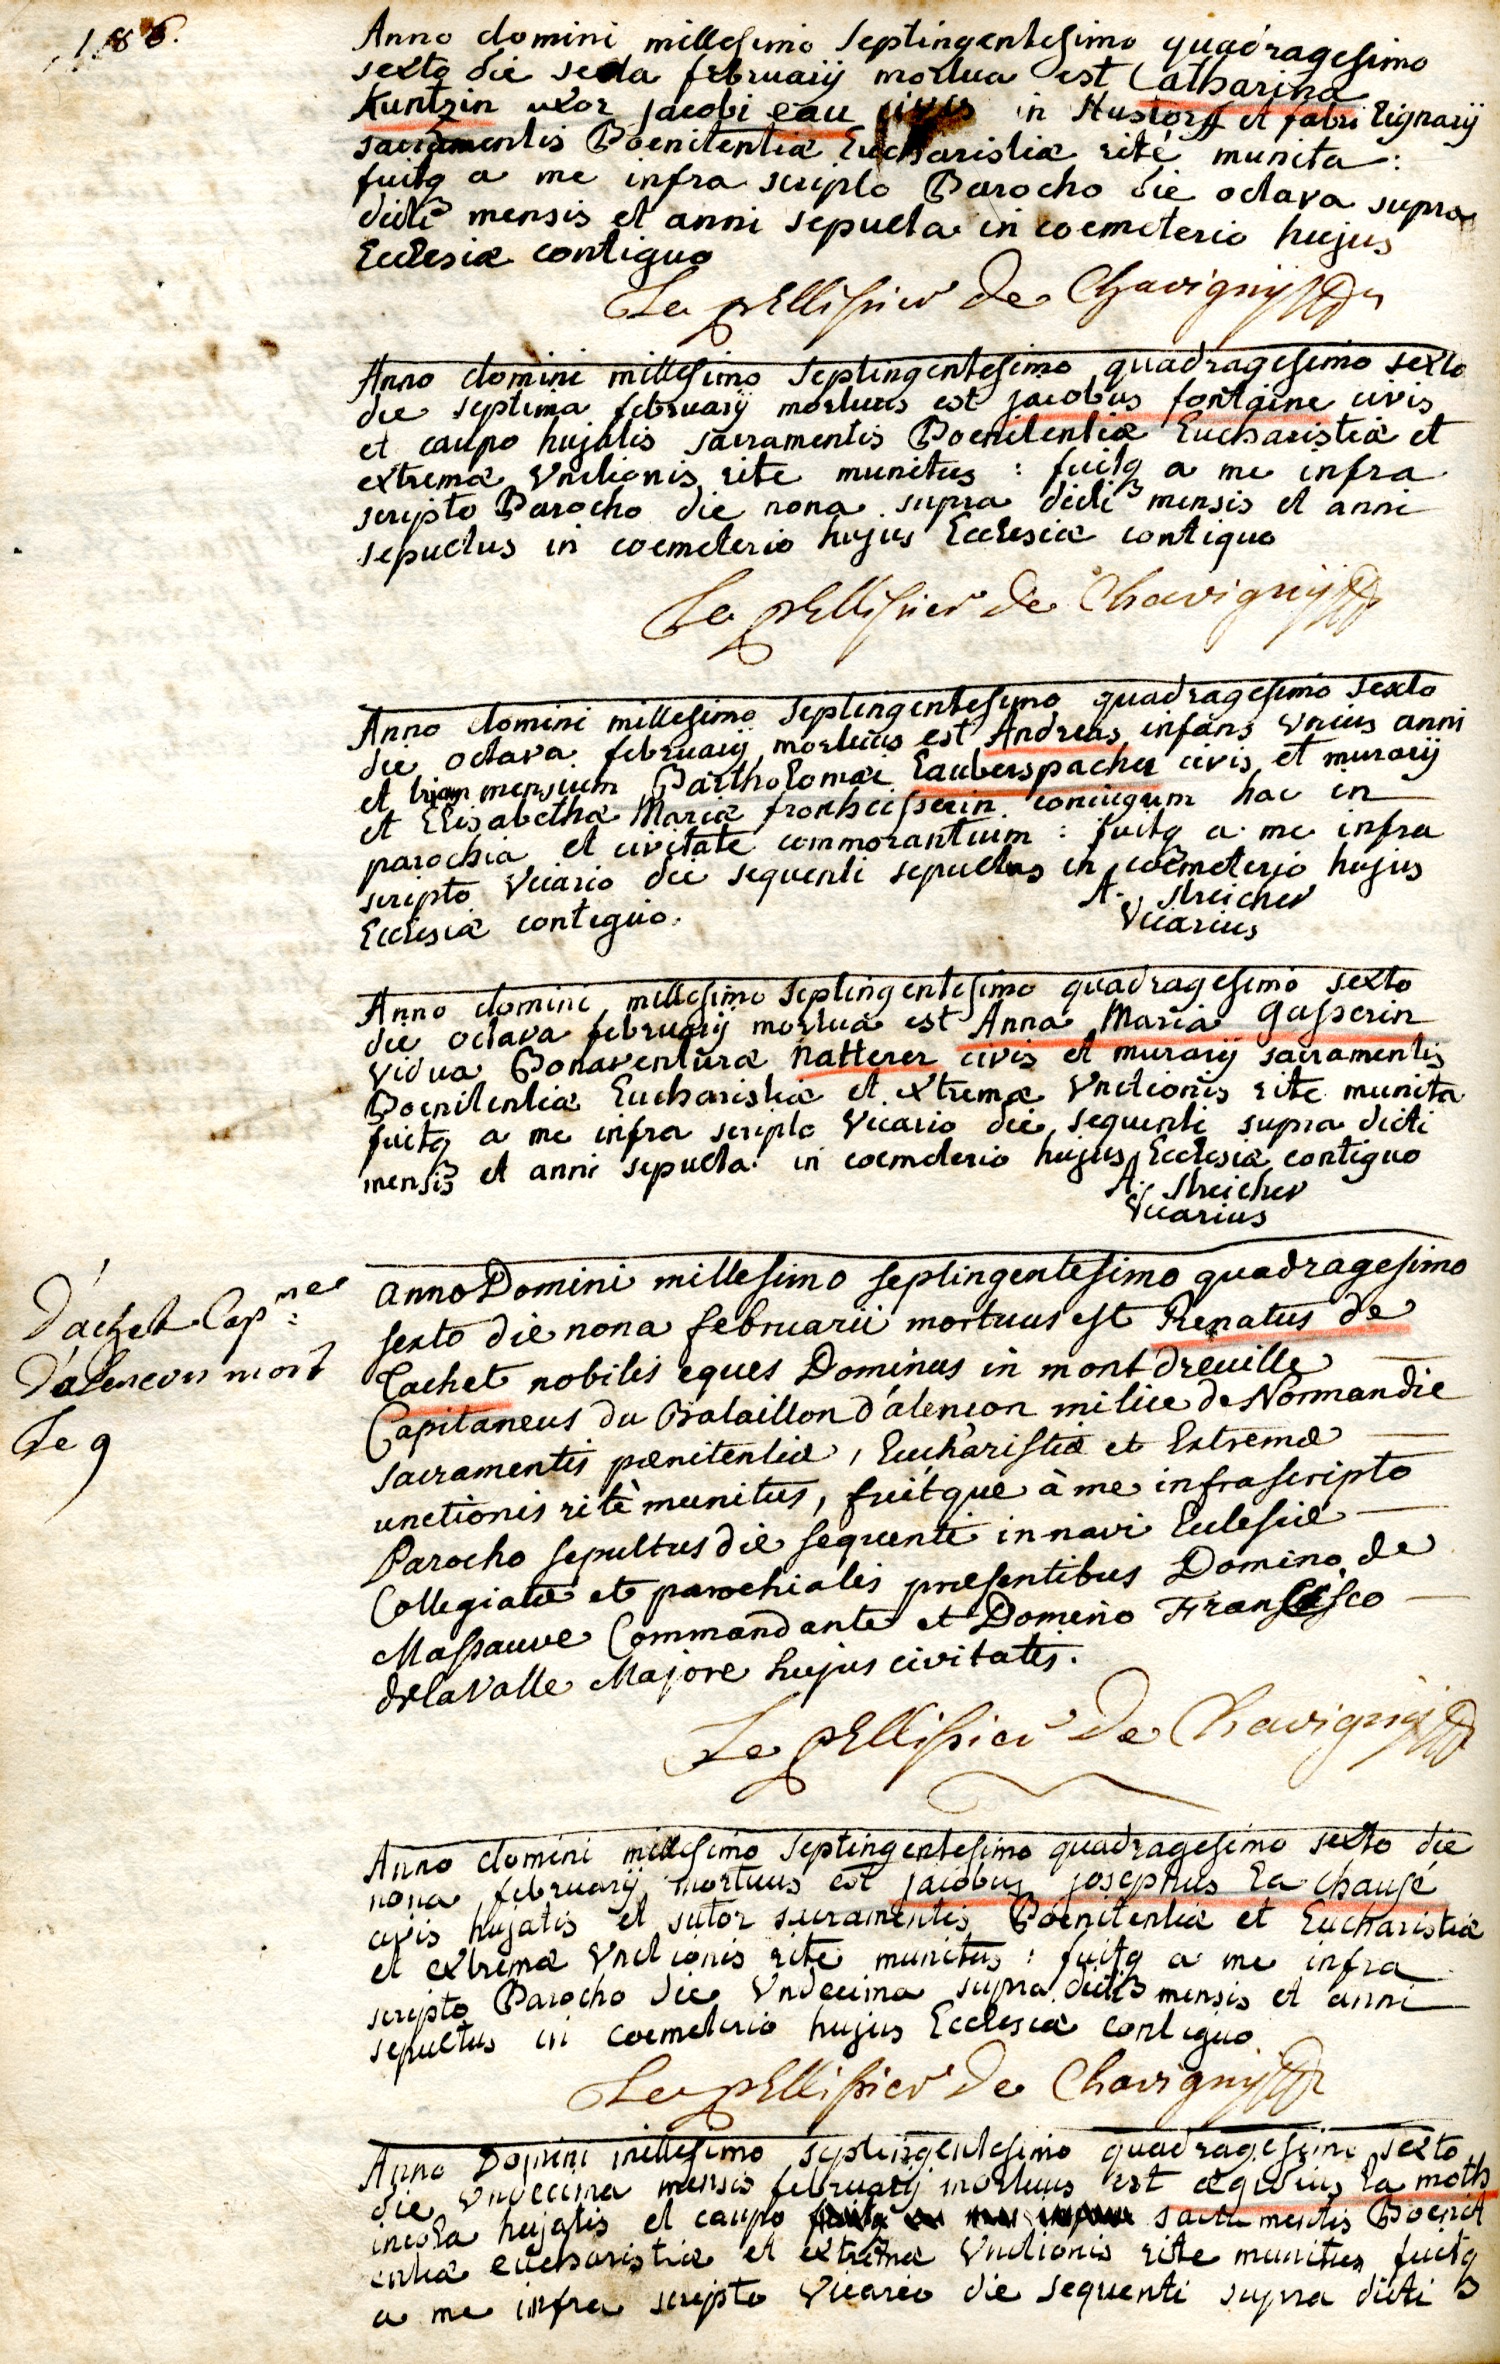 186.
Anno domini millesimo Septingentesimo quadragesimo
sexto die sexta februarij mortua est Catharina
Kuntzin uxor jacobi eau civis in Hustorff et fabri lignarij
sacramentis Poenitentiæ Eucharistiæ rité munita :
fuitq a me infra scripto Parocho die octava supra
dicti mensis et anni sepulta in coemeterio hujus
Ecclesiæ contiguo
Le pellissier de Chavigny
Anno domini millesimo Septingentesimo quadragesimo sexto
die septima februarij mortuus est jacobus fontaine civis
et caupo hujatis sacramentis Poenitentiæ Eucharistiæ et
extremæ Unctionis rite munitus : fuitq a me infra
scripto Parocho die nona supra dicti mensis et anni
sepultus in coemeterio hujus Ecclesiæ contiguo
Le pellissier de Chavigny
Anno domini millesimo Septingentesimo quadragesimo sexto
die octava februarij mortuus est Andreas infans Unius anni
et trium mensium Partholomæi Lauberspacher civis et murarij
et Elisabethæ Mariæ conjugum hac in
parochia et civitate commorantium : fuitq a me infra
scripto Vicario die sequenti sepultus in coemeterio hujus
Ecclesiæ contiguo.
A. Streicher
Vicarius
Anno domini millesimo Septingentesimo quadragesimo sexto
die octava februarij mortua est Anna Maria Gasserin
vidua Bonaventuræ Natterer civis et murarij sacramentis
Poenitentiæ Eucharistiæ et extremæ Unctionis rite munita
fuitq a me infra scripto Vicario die sequenti supra dicti
mensis et anni sepulta in coemeterio hujus Ecclesiæ contiguo
A. Streicher
Vicarius
d'achet Cap.ne
d'alencon mort
le 9
anno Domini millesimo septingentesimo quadragesimo
sexto die nona februarii mortuus est Renatus de
Cachet nobilis eques Dominus in montdreuille
Capitaneus du Bataillon d'alencon milice de Normandie
sacramentis pœnitentiæ, Eucharistiæ et Extremæ
unctionis ritè munitus, fuitque à me infrascripto
Parocho sepultus die sequenti in navi Eclesiæ
Collegiatæ et parochialis præsentibus Domino de
Massauve Commandante et Domino Francisco
de la Valle Majore hujus civitatis.
Le pellissier de Chavigny
Anno domini millesimo Septingentesimo quadragesimo sexto die
nona februarij mortuus est jacobus josephus La chausé
civis hujatis et sutor sacramentis Poenitentiæ et Eucharistiæ
et extremæ Unctionis rite munitus : fuitq a me infra
scripto Parocho die Undecima supra dicti mensis et anni
sepultus in coemeterio hujus Ecclesiæ contiguo
Le pellissier de Chavigny
Anno Domini millesimo septingentesimo quadragesimo sexto
die Undecima mensis februarij mortuus est ægidius La moth
incola hujatis et caupo sacramentis Poenit
entiæ eucharistiæ et extremæ Unctionis rite munitus fuitq
a me infra scripto Vicario die sequenti supra dicti